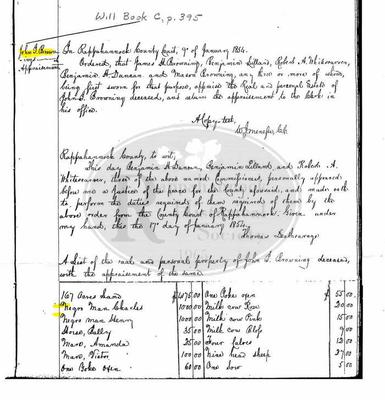 Will Book C, p. 395
John G. Brown
Appraisement
In Rappahannock County Court, 9th of January 1854.
Ordered, that James H. Browning, Benjamin Lillard, Robert A. Whitescarver,
Benjamin A. Duncan and Mason Browning, any three or more of whom,
being first sworn for that purpose, appraise the Real and personal Estate of
John G. Browning deceased, and return the appraisement to the Clerk in
his office.
A Copy test,
W. J. Menefee Clk
Rappahannock County, to wit,
This day Benjamin A. Duncan, Benjamin Lillard, and Robert A.
Whitescarver, three of the above named Commissioners, personally appeared
before me a Justice of the peace for the County aforesaid, and made oath
to perform the duties required of them required of them by the
above order from the County Court of Rappahannock. Given under
my hand, this the 17th day of January 1854.
Thomas
A List of the real and personal property of John G. Browning deceased,
with the appraisement of the same
167 Acres Land
Negro Man Charles 1000 00
Negro man Henry 1000 00
Horse, Bally 35 00
Mare, Amanda 25 00
Mare, 100 00
One Yoke Oxen 60 00
One Yoke oxen $ 55 00
Milk cow Roan 20 00
Milk cow Pink 15 00
Milk cow 8 00
Four Calves 12 00
Nine head sheep 27 00
One Sow 5 00